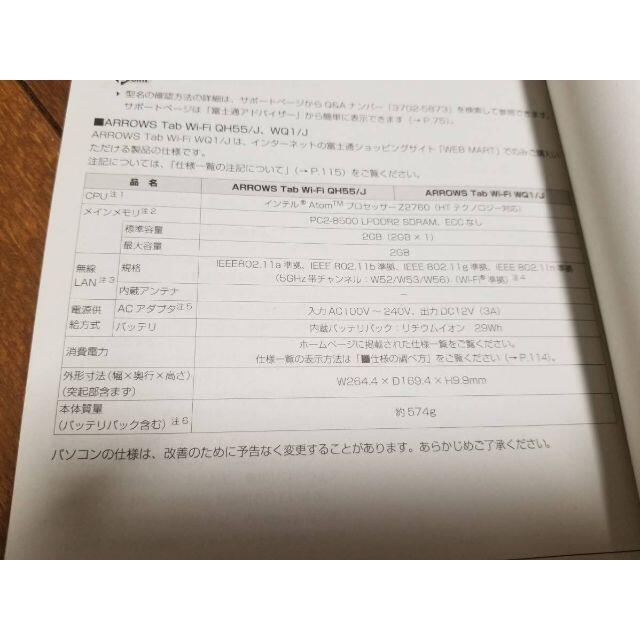 ▶ 型名の確認方法の詳細は、サポートページからQ&Aナンバー「3702-5873」を検索して参照できます。
サポートページは「富士通アドバイザー」から簡単に表示できます（→P.75）。
■ARROWS Tab Wi-Fi QH55/J、WQ1/J
ARROWS Tab Wi-Fi WQ1/Jは、インターネットの富士通ショッピングサイト「WEB MART」でのみご購入い
ただける製品の仕様です。
注記については、「仕様一覧の注記について」（→P.115）をご覧ください。
品 名 ARROWS Tab Wi-Fi QH55/J ARROWS Tab Wi-Fi WQ1/J
CPU注1 インテル® Atom™ プロセッサーZ2760（HT テクノロジー対応）
メインメモリ注2 PC2-8500 LPDDR2 SDRAM、ECCなし
標準容量 2GB（2GB×1）
最大容量 2GB
無線LAN注3 規格 IEEE802.11a準拠、IEEE 802.11b準拠、IEEE 802.11g準拠、IEEE 802.11n準拠
（5GHz帯チャンネル：W52/W53/W56）（Wi-Fi®準拠）注4
内蔵アンテナ －
電源供給方式 ACアダプタ注5 入力AC100V～240V、出力DC12V（3A）
バッテリ 内蔵バッテリパック：リチウムイオン 29Wh
消費電力 ホームページに掲載された仕様一覧をご覧ください。
仕様一覧の表示方法は「■仕様の調べ方」をご覧ください（→P.114）。
外形寸法（幅×奥行×高さ）
（突起部含まず） W264.4×D169.4×H9.9mm
本体質量
（バッテリパック含む）注6 約574g
パソコンの仕様は、改善のために予告なく変更することがあります。あらかじめご了承ください。